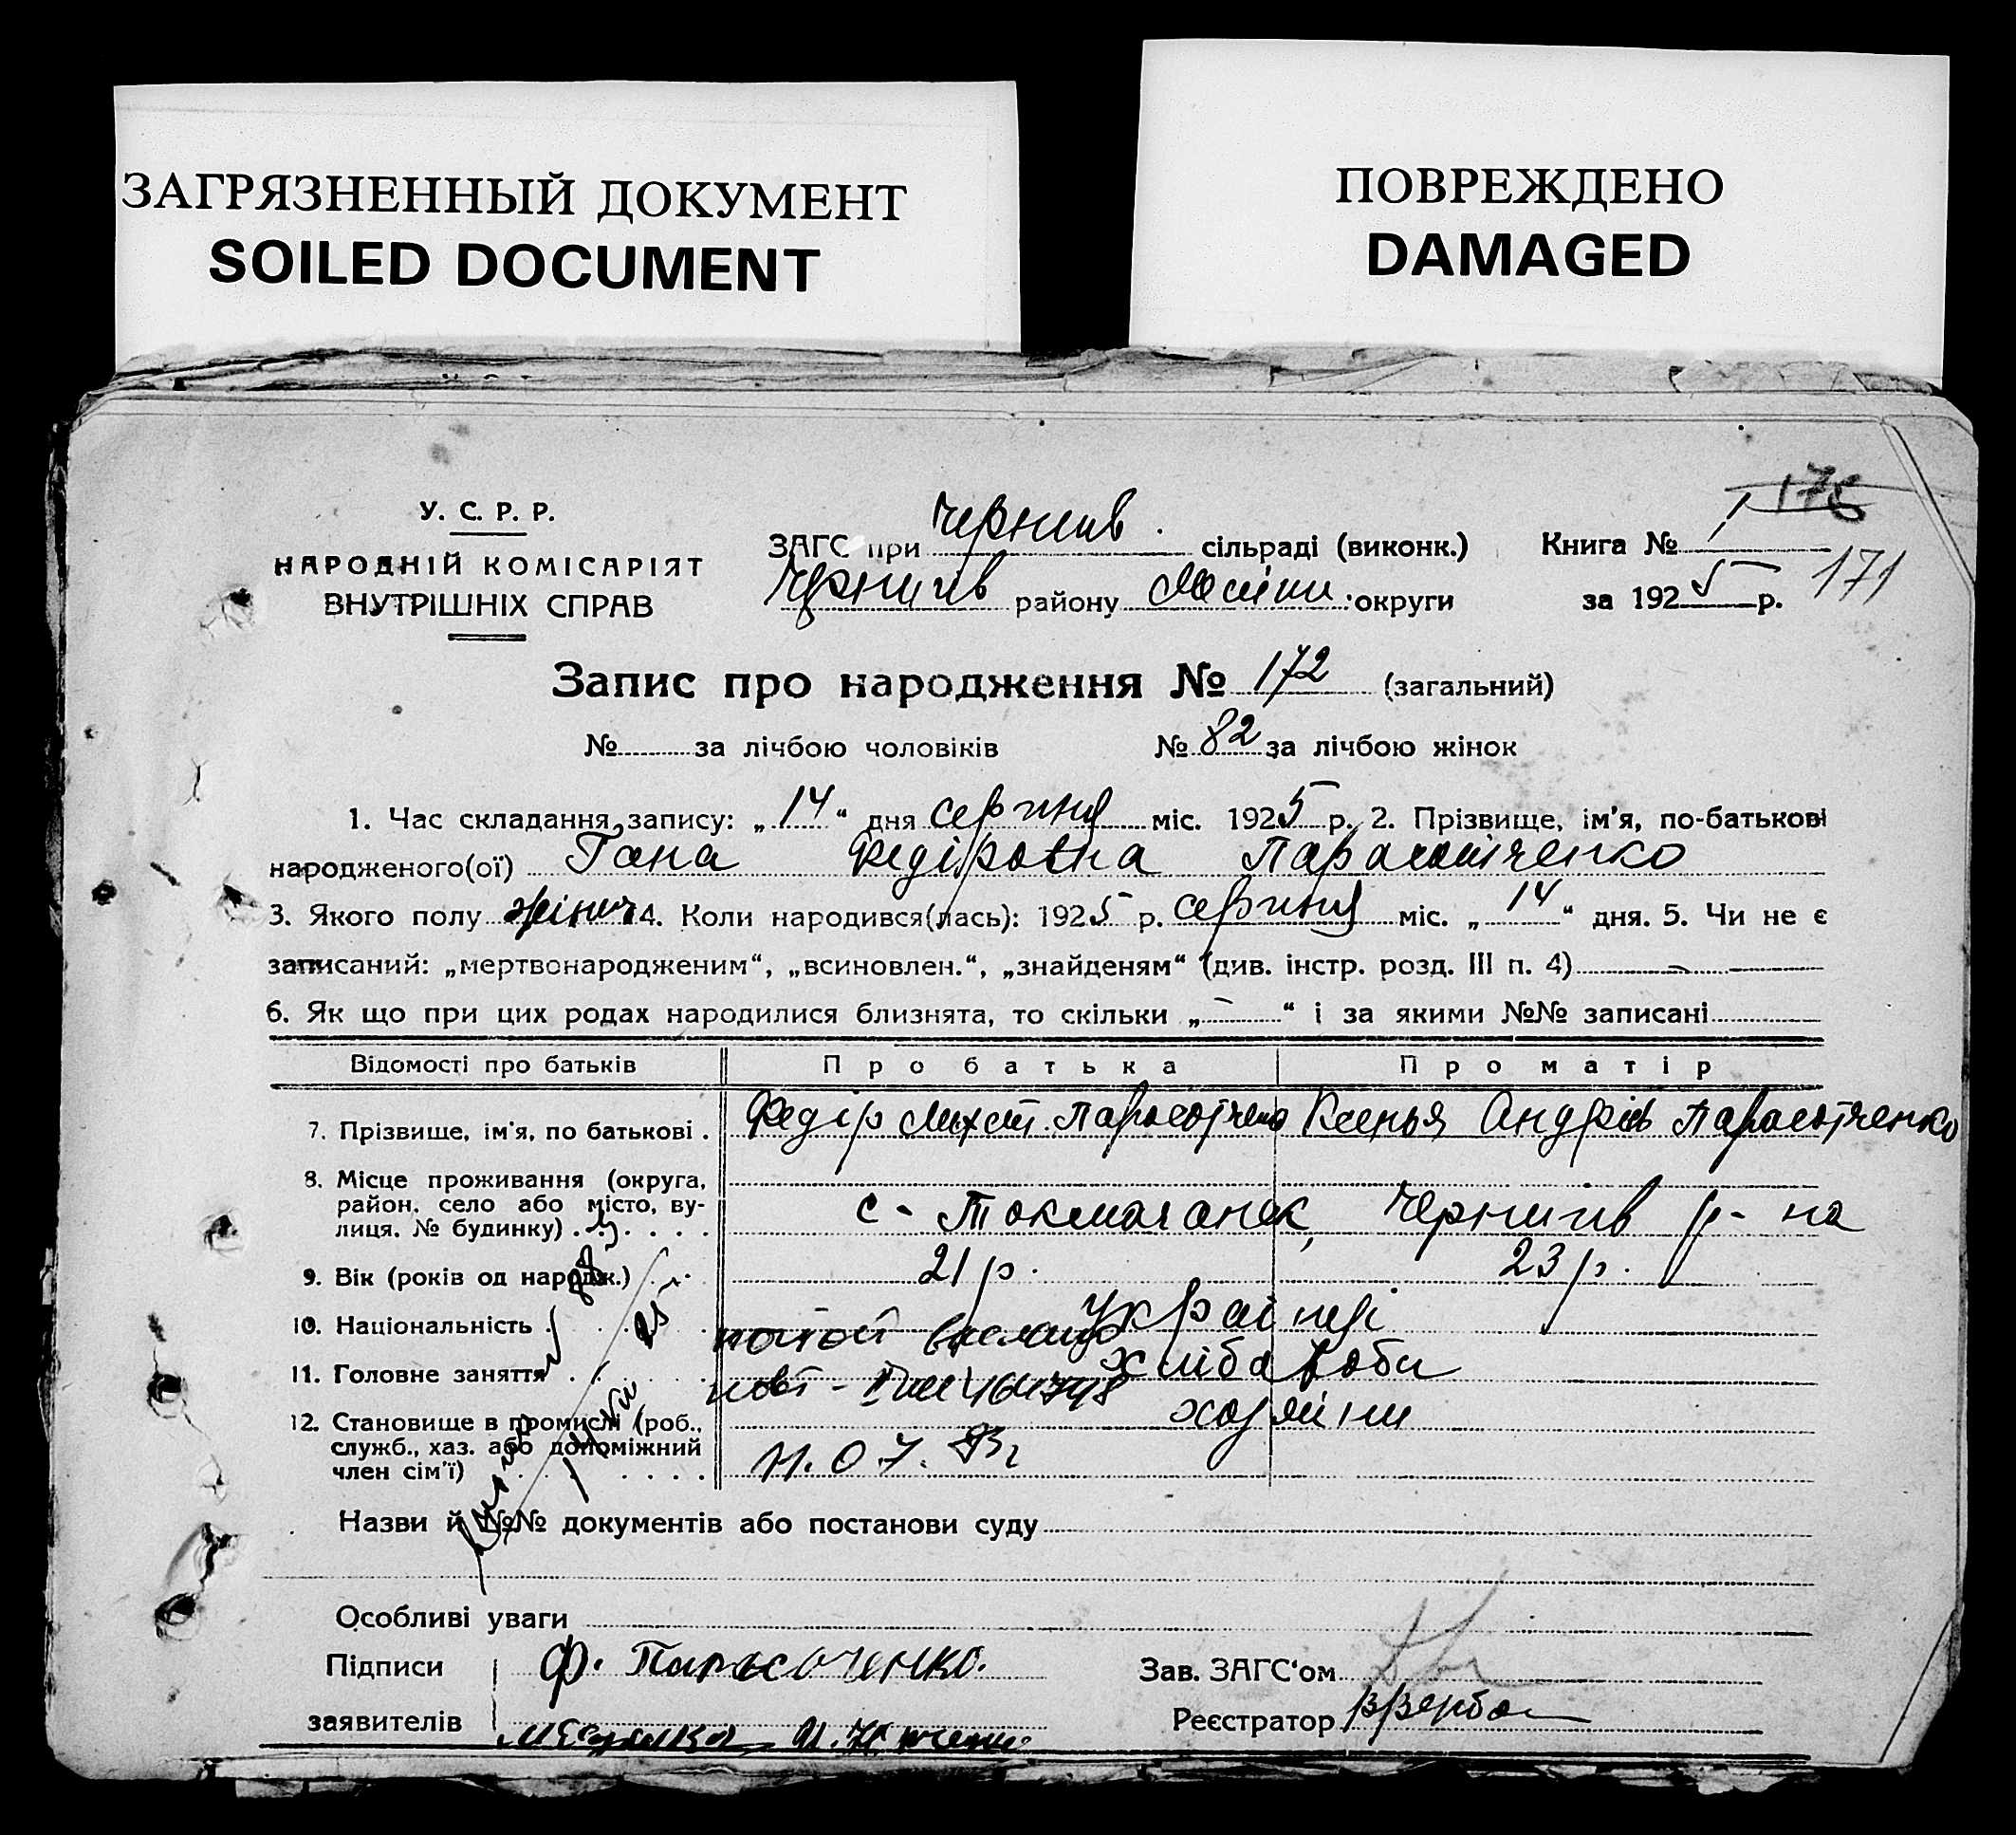 ЗАГРЯЗНЕННЫЙ ДОКУМЕНТ
SOILED DOCUMENT
ПОВРЕЖДЕНО
DAMAGED
У. С. Р. Р.
НАРОДНІЙ КОМІСАРІЯТ
ВНУТРІШНІХ СПРАВ
ЗАГС при Чернигів. сільраді (виконк.)
Чернигів району округи
Книга № 1
за 1925 р.
176
171
Запис про народження № 172 (загальний)
№ за лічбою чоловіків № 82 за лічбою жінок
1. Час складання запису: „14“ дня серпня міс. 1925 р. 2. Прізвище, ім'я, по-батькові
народженого(ої) Гана Федіровна
3. Якого полу жіноч 4. Коли народився(лась): 1925 р. серпня міс. „14“ дня. 5. Чи не є
записаний: „мертвонародженим“, „всиновлен.“, „знайденям“ (див. інстр. розд. III п. 4) —
6. Як що при цих родах народилися близнята, то скільки „—“ і за якими №№ записані
Відомості про батьків Про батька Про матір
7. Прізвище, ім'я, по батькові . Федір Ксенья Андріїв
8. Місце проживання (округа,
район, село або місто, ву-
лиця, № будинку) с - Токмачанск, Чернигів р-на
9. Вік (років од народж.) 21 р. 23 р.
10. Національність Українці
11. Головне заняття хлібароби
12. Становище в промислі (роб.,
служб., хаз. або допоміжний
член сім'ї) хозяїни
11.07.93г
Назви й №№ документів або постанови суду
Особливі уваги
Підписи Ф.
заявителів
Зав. ЗАГС'ом
Реєстратор